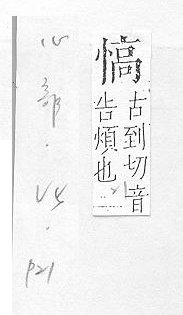 古到切音
告煩也
心部 · V4 · P21